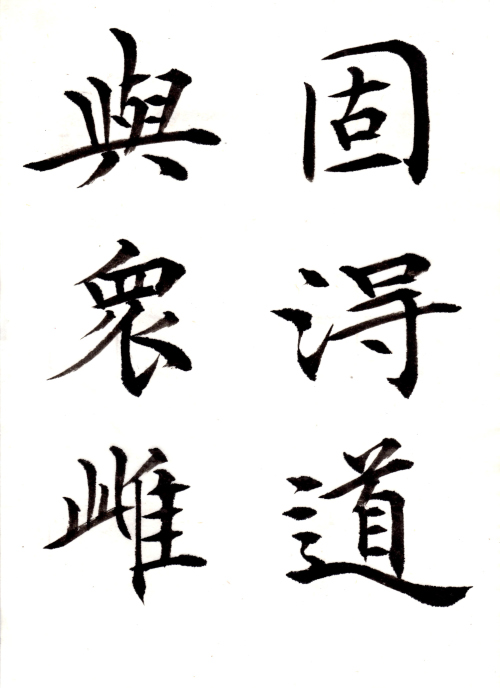 固得道
與衆雌